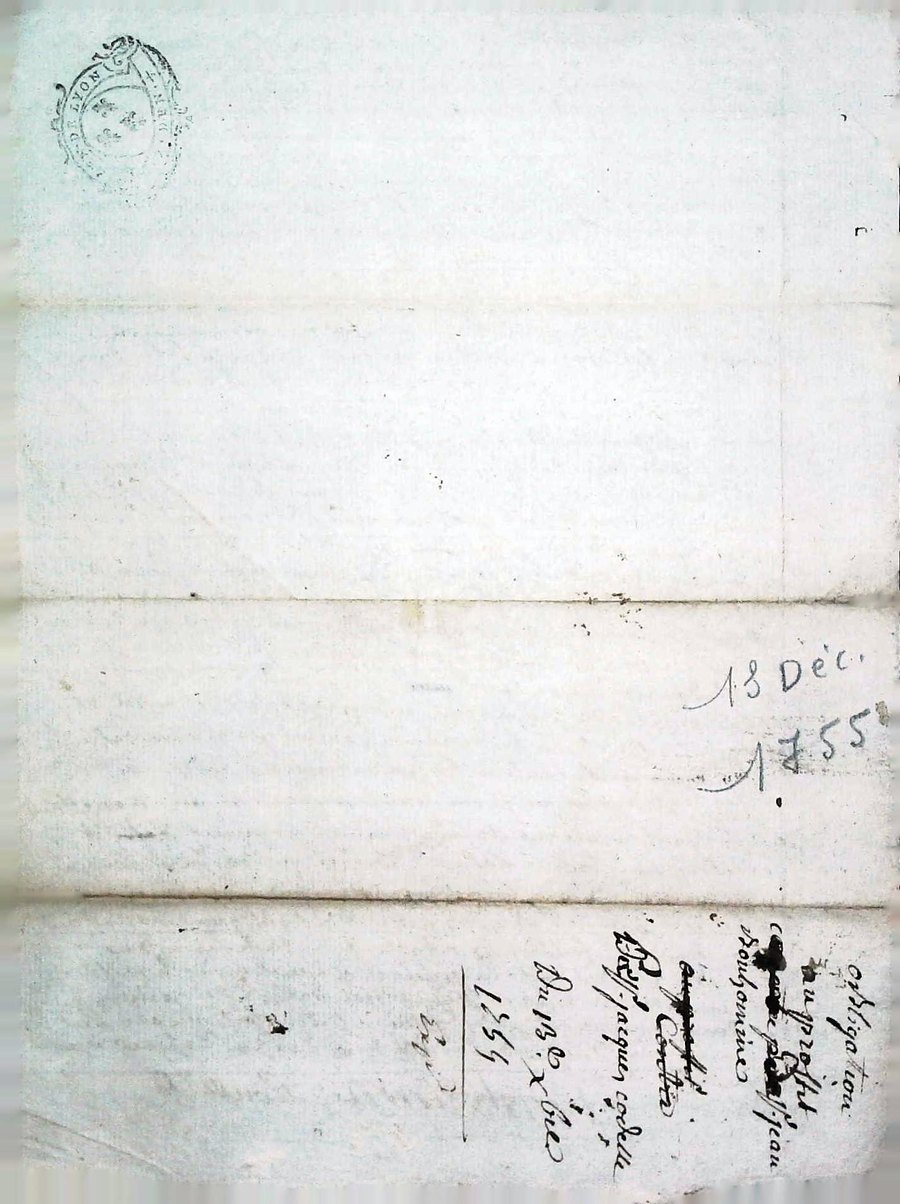 DE LYON
13 Déc.
1755
obligation
au proffit
Sr. jean
Bonhomme
Contre
Sr. jacques codelle
Du 13e. Xbre
1755